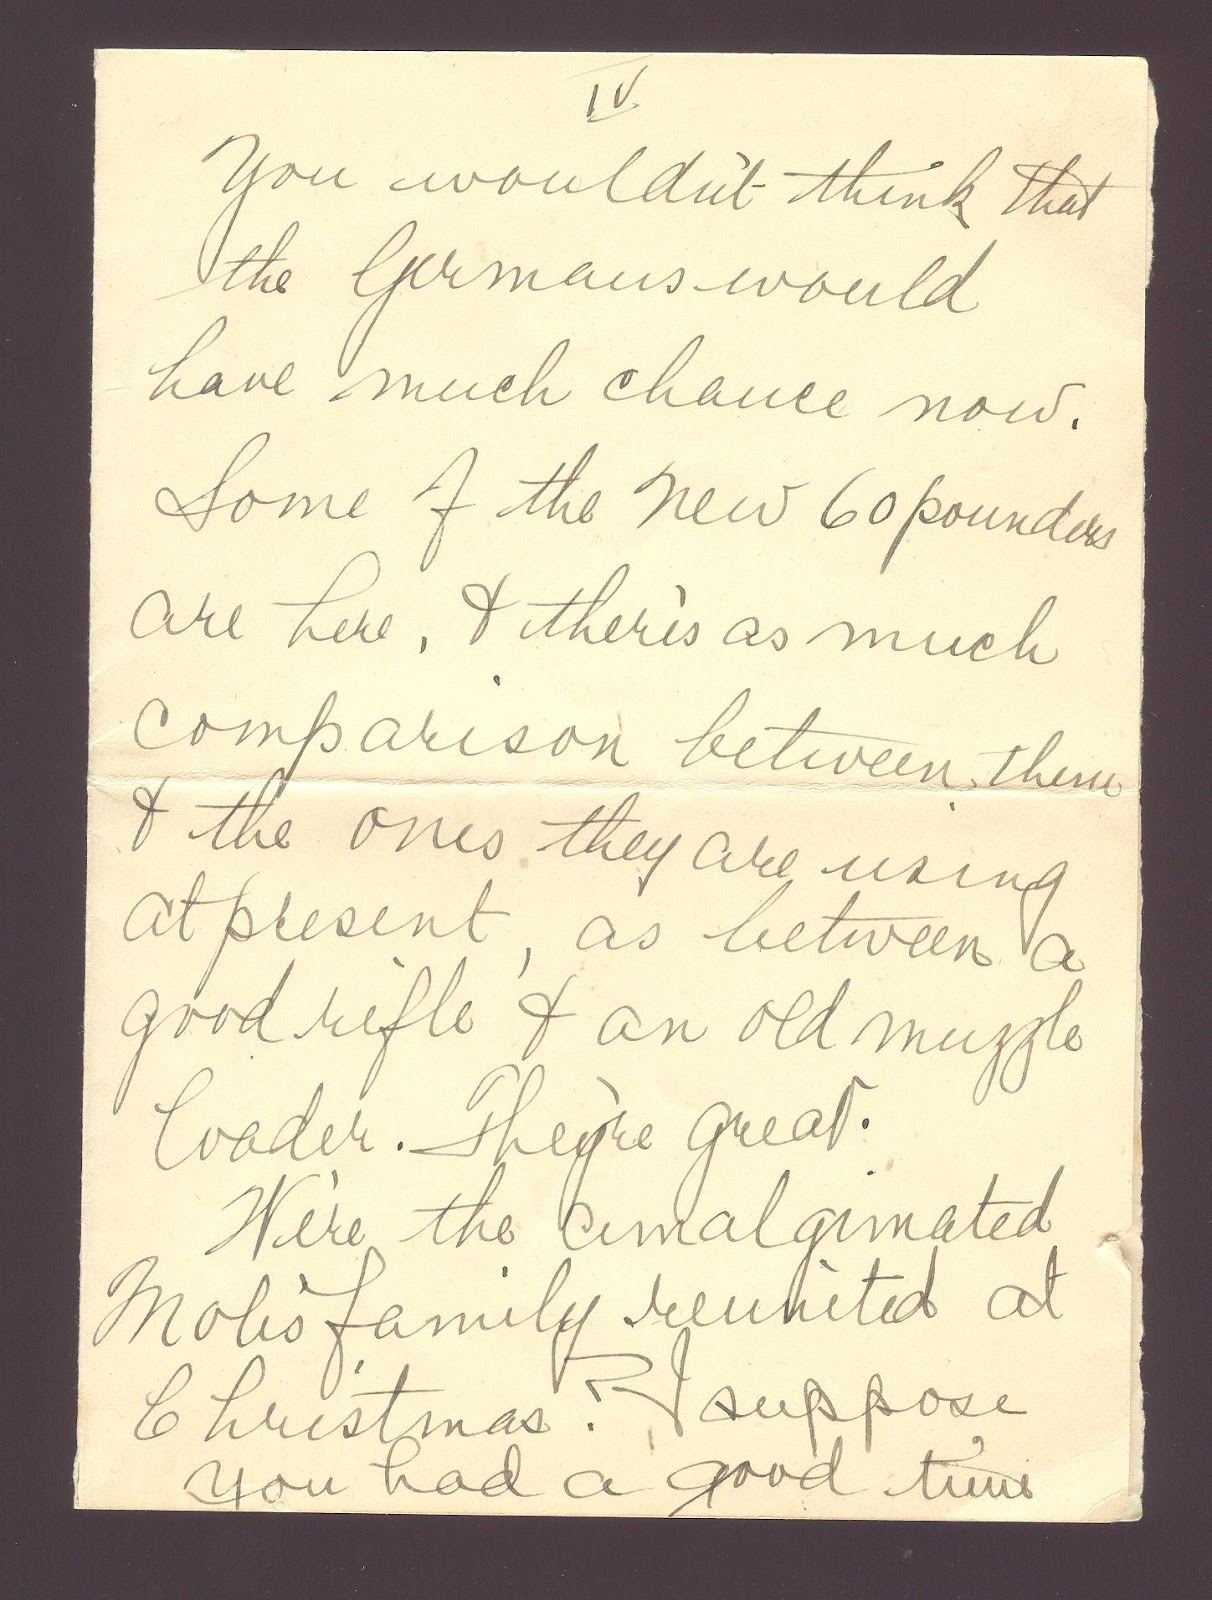 IV
You wouldn't think that
the Germans would
have much chance now.
Some of the new 60 pounders
are here, & there's as much
comparison between them
& the ones they are using
at present, as between a
good rifle & an old muzzle
loader. They're great.
We're the amalgimated
family reunited at
Christmas? I suppose
you had a good time